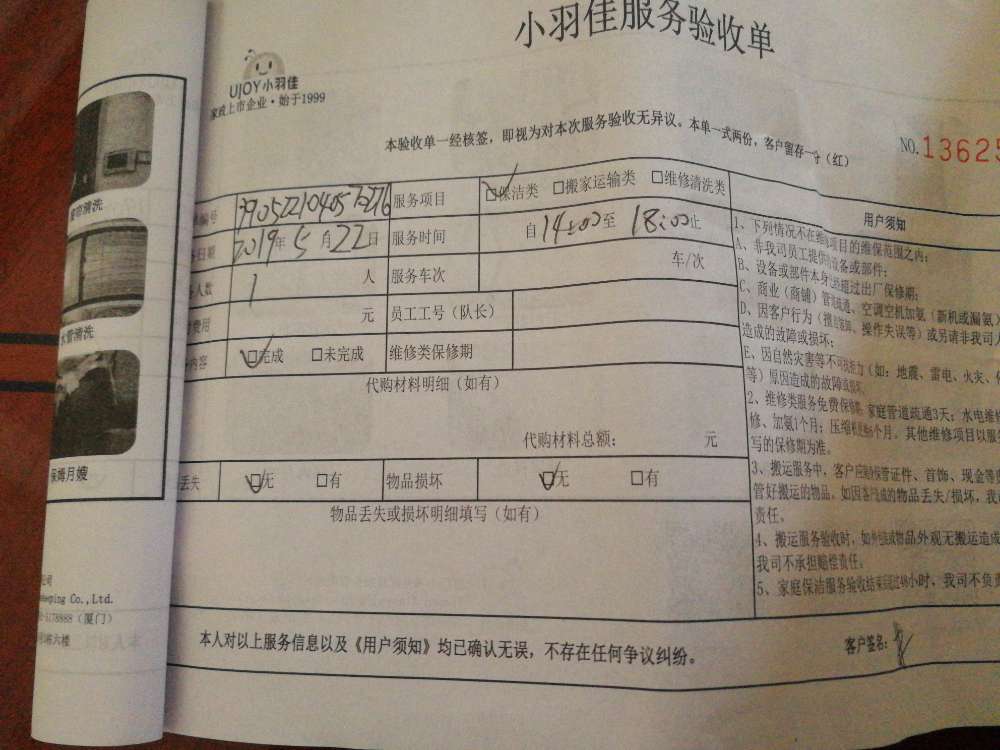 小羽佳服务验收单
UJOY小羽佳
家政上市企业·始于1999
本验收单一经核签，即视为对本次服务验收无异议。本单一式两份，客户留存一 （红）
NO.13625
编号
服务项目 □保洁类 □搬家运输类 □维修清洗类
日期 2019年5月22日 服务时间 自14:00至18:00止
人数 1 人 服务车次 车/次
费用 元 员工工号（队长）
内容 □完成 □未完成 维修类保修期
代购材料明细（如有）
代购材料总额： 元
丢失 □无 □有 物品损坏 □无 □有
物品丢失或损坏明细填写（如有）
用户须知
1、下列情况不在维修项目的维保范围之内：
A、非我司员工提供的设备或部件；
B、设备或部件本身已经超过出厂保修期；
C、商业（商铺）管道疏通、空调空机加氨（新机或漏氨）
D、因客户行为 操作失误等）或另请非我司
造成的故障或损坏；
E、因自然灾害等不可抗力（如：地震、雷电、火灾、
等）原因造成的故障或损坏。
2、维修类服务免费保修期：家庭管道疏通3天；水电维
修、加氨1个月；压缩机 6个月。其他维修项目以服
写的保修期为准。
3、搬运服务中，客户 证件、首饰、现金等
管好搬运的物品。如因 造成的物品丢失/损坏，我
责任。
4、搬运服务验收时，如 物品外观无搬运造成
我司不承担赔偿责任。
5、家庭保洁服务验收结束后超过48小时，我司不负责
本人对以上服务信息以及《用户须知》均已确认无误，不存在任何争议纠纷。
客户签名：
清洗
水管清洗
保姆月嫂
公司
keeping Co.,Ltd.
-5178888（厦门）
栋六楼